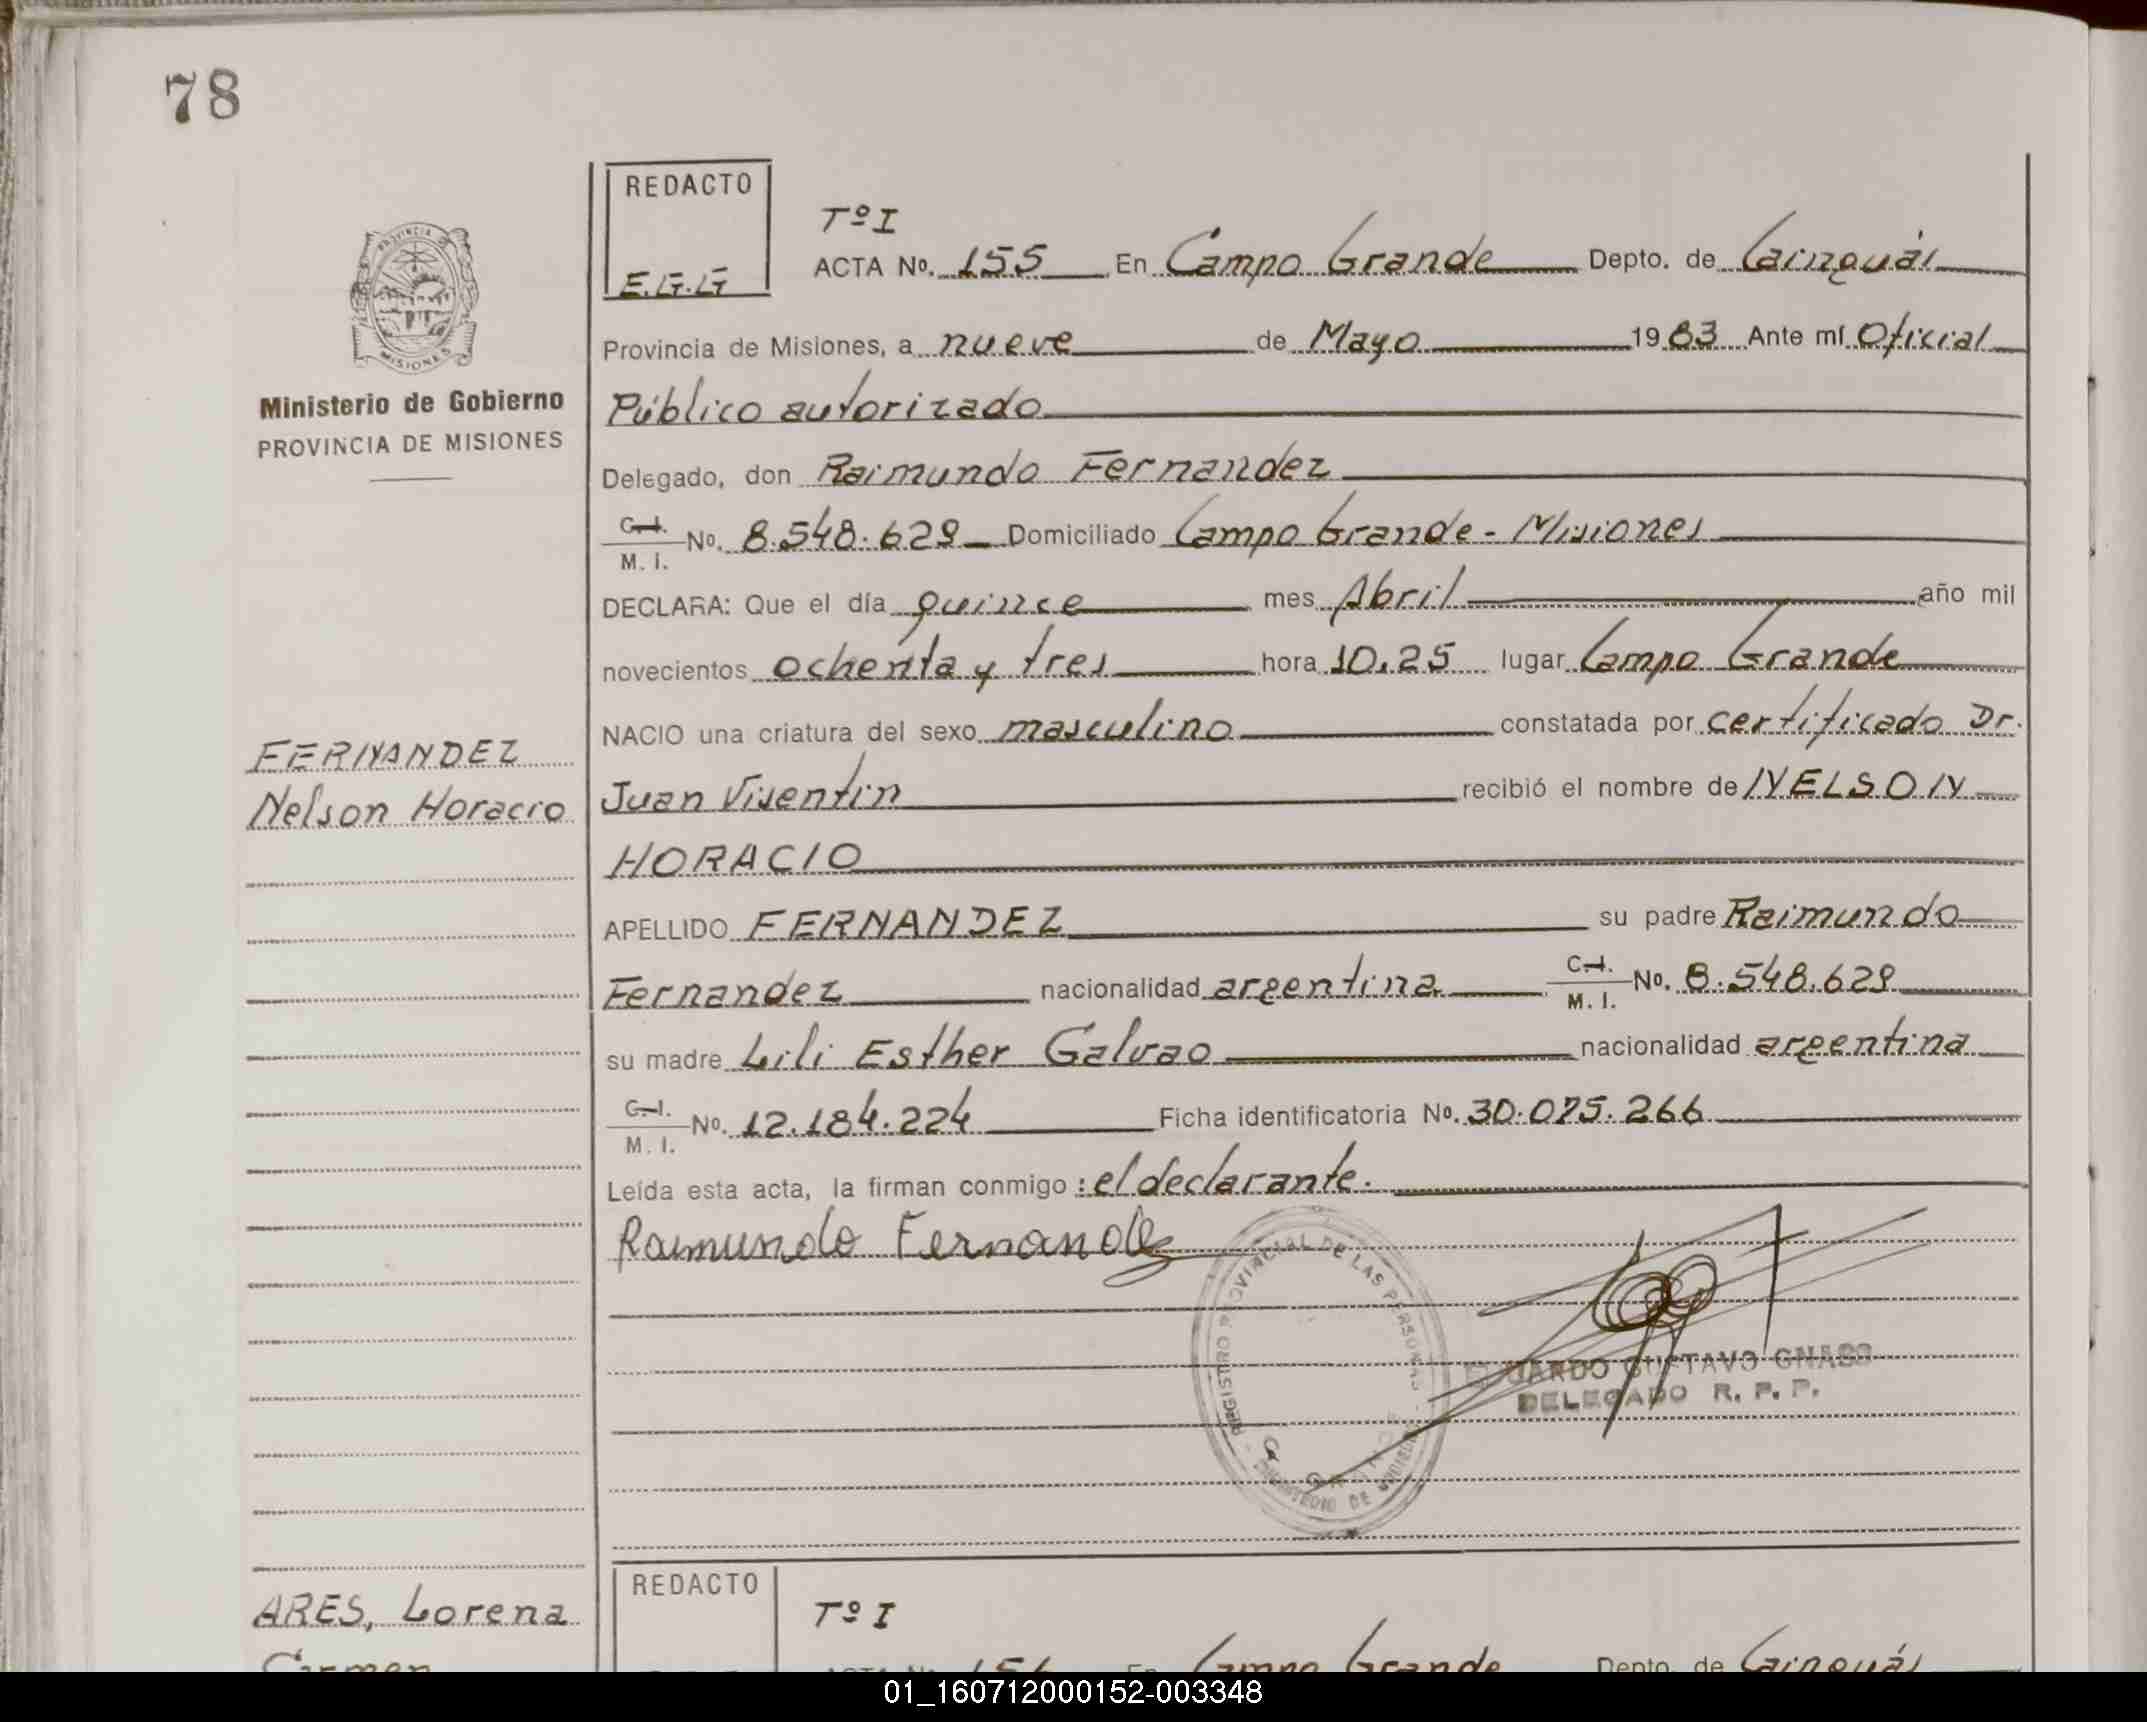 78
REDACTO
E.G.G
Tº I
ACTA Nº. 155 En Campo Grande Depto. de Cainguás
Provincia de Misiones, a nueve de Mayo 1983 Ante mí Oficial
Público autorizado
Delegado, don Raimundo Fernandez
C.I. M. I. Nº. 8.548.629 Domiciliado Campo Grande - Misiones
DECLARA: Que el día quince mes Abril año mil
novecientos ochenta y tres hora 10.25 lugar Campo Grande
NACIO una criatura del sexo masculino constatada por certificado Dr.
Juan Visentin recibió el nombre de NELSON
HORACIO
APELLIDO FERNANDEZ su padre Raimundo
Fernandez nacionalidad argentina C.I. M. I. Nº. 8.548.629
su madre Lili Esther Galvao nacionalidad argentina
C.I. M. I. Nº. 12.184.224 Ficha identificatoria Nº. 30.075.266
Leída esta acta, la firman conmigo: el declarante.
Raimundo Fernandez
REGISTRO PROVINCIAL DE LAS PERSONAS
EDUARDO GUSTAVO GNASS
DELEGADO R. P. P.
PROVINCIA DE
MISIONES
Ministerio de Gobierno
PROVINCIA DE MISIONES
FERNANDEZ
Nelson Horacio
ARES, Lorena
Carmen
REDACTO
Tº I
ACTA Nº. 156 En Campo Grande Depto. de Cainguás
01_160712000152-003348